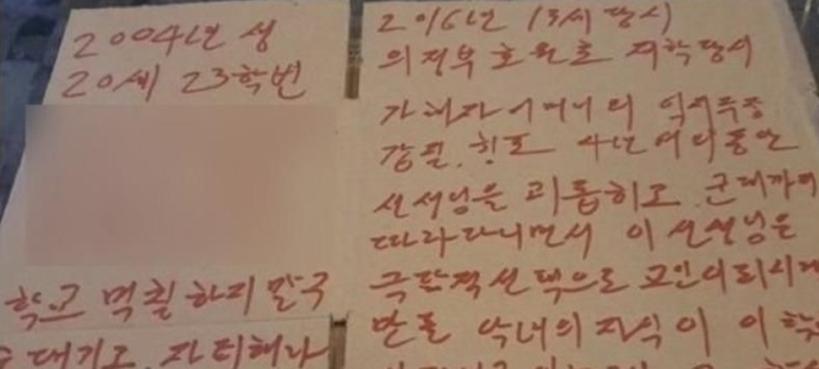 2004년 생
20세 23학번
학교 먹칠하지 말구
대기로 자퇴해라
2016년 13세 당시
의정부 호원초 재학당시
가해자 어머니의 억지루장
갑질, 횡포 4년여의동안
선생님을 괴롭히고 군대까지
따라다니면서 이 선생님은
극단적선택으로 고인이되시게
만든 악녀의 자식이 이 학